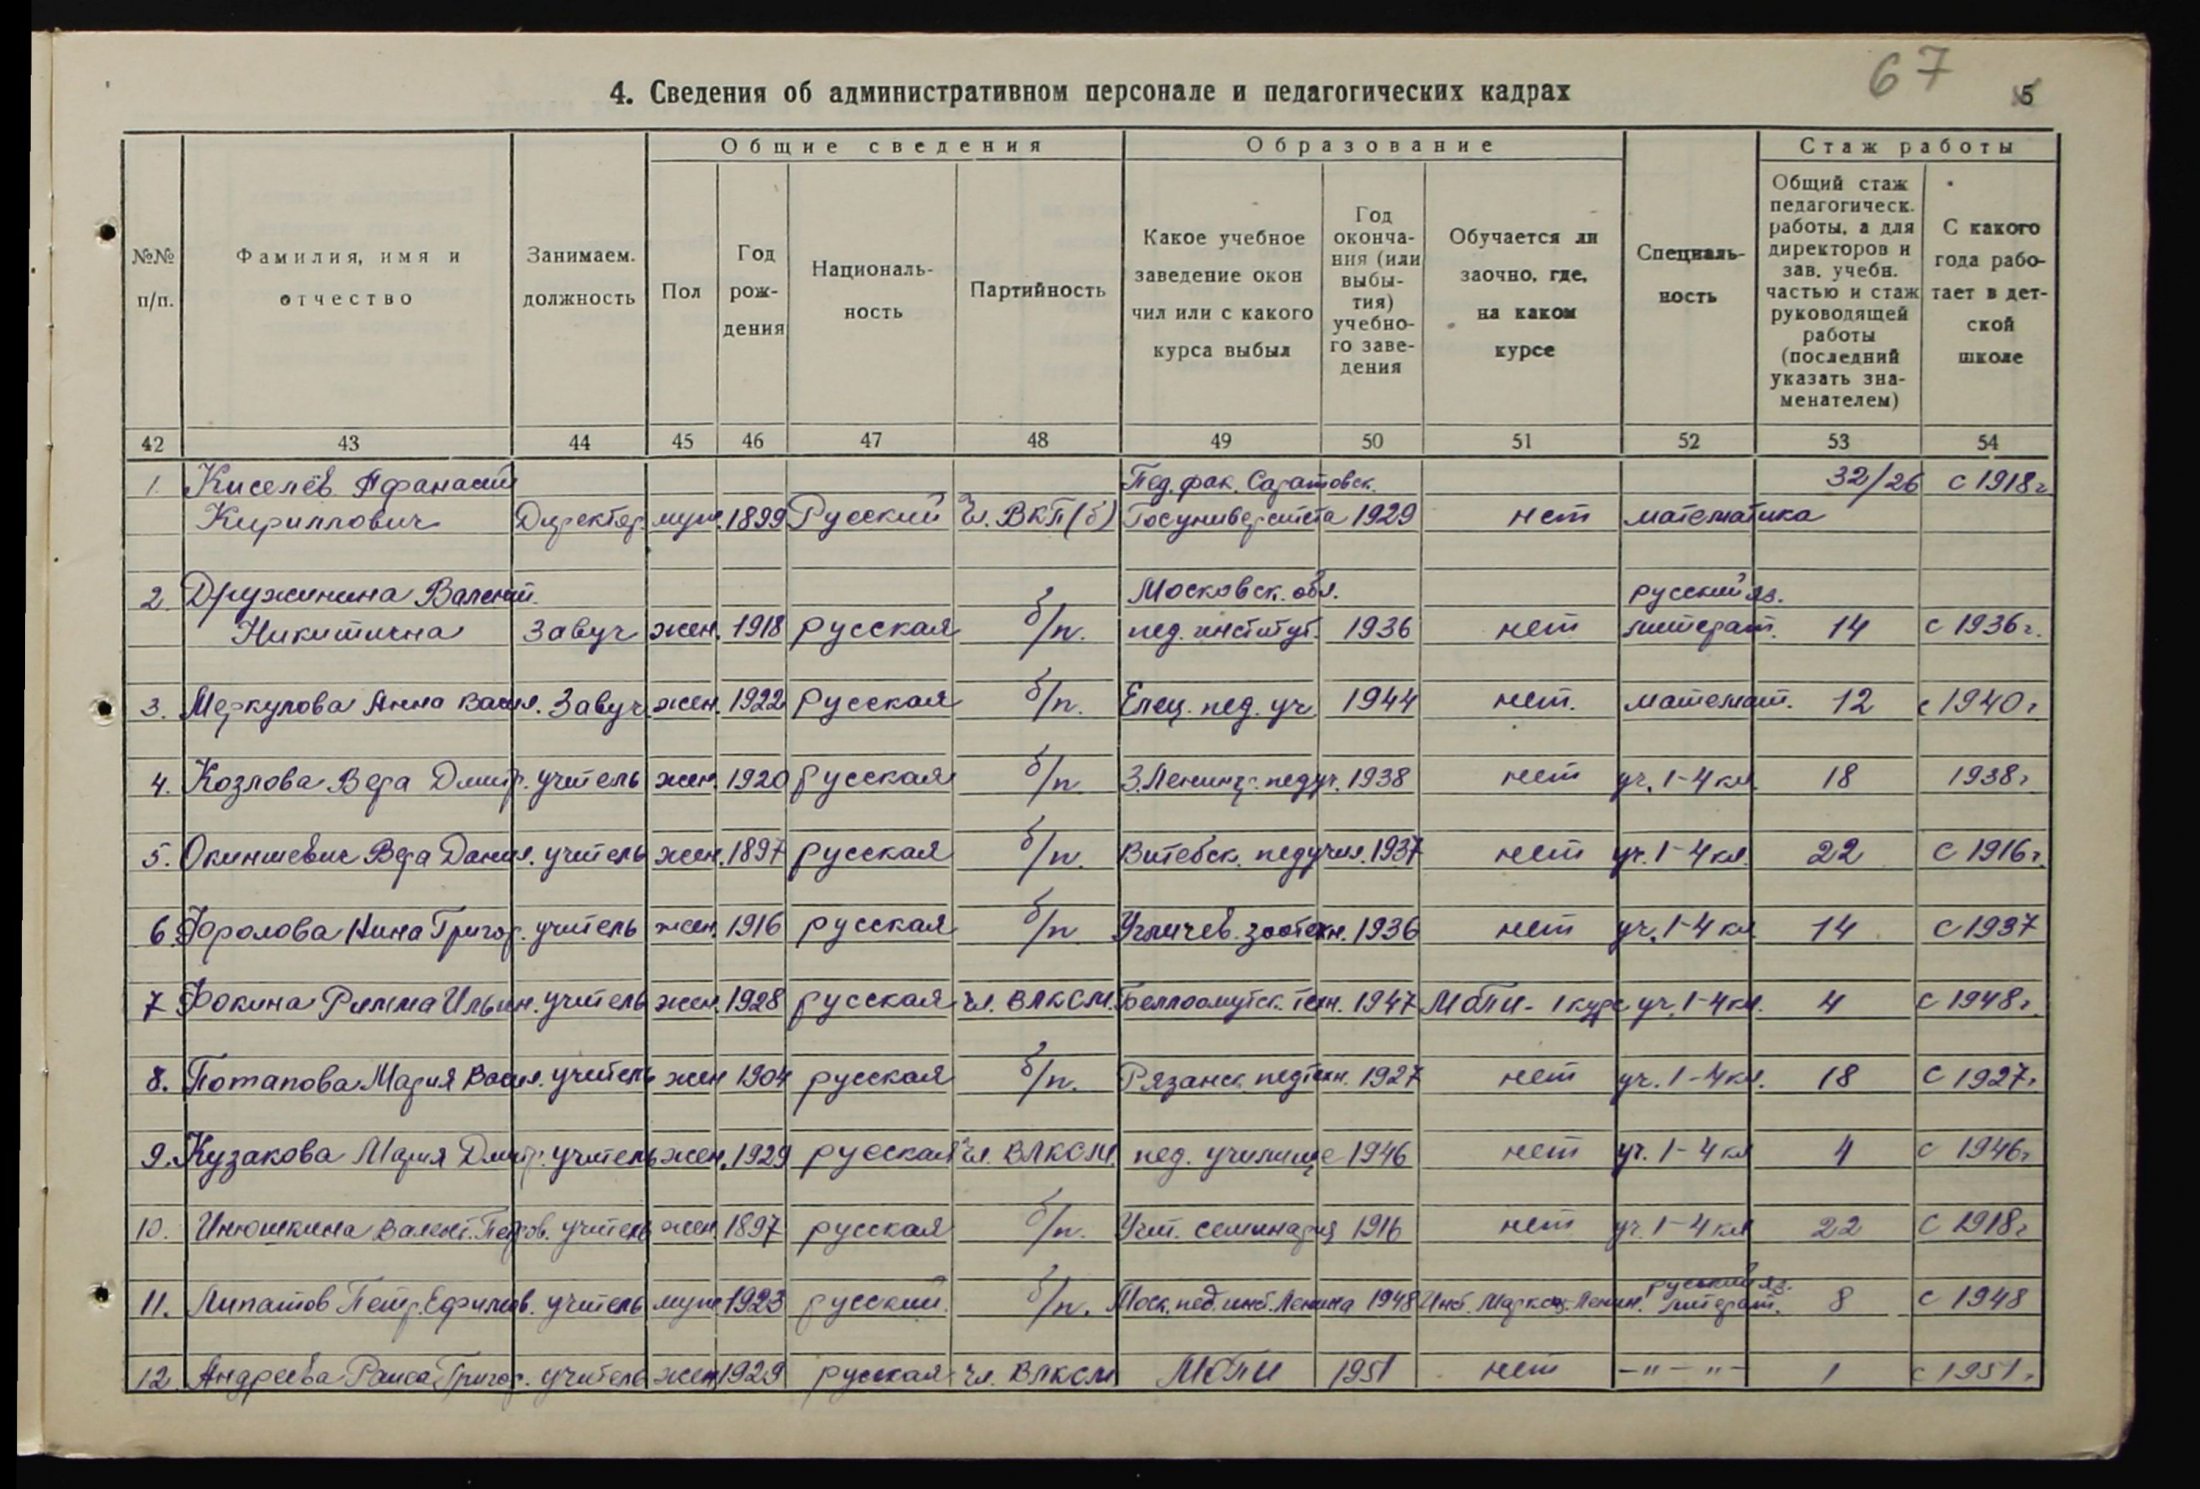 67
5
4. Сведения об административном персонале и педагогических кадрах
Общие сведения Образование Стаж работы
№№ п/п. Фамилия, имя и отчество Занимаем. должность Пол Год рож- дения Националь- ность Партийность Какое учебное заведение окон чил или с какого курса выбыл Год оконча- ния (или выбы- тия) учебно- го заве- дения Обучается ли заочно, где, на каком курсе Специаль- ность Общий стаж педагогическ. работы, а для директоров и зав. учебн. частью и стаж руководящей работы (последний указать зна- менателем) С какого года рабо- тает в дет- ской школе
42 43 44 45 46 47 48 49 50 51 52 53 54
1. Киселёв Афанасий Пед. фак. Саратовск. 32/26 с 1918 г.
Кириллович Директор муж. 1899 Русский Чл. ВКП(б) Госуниверситета 1929 нет математика
2. Дружинина Валент. Московск. обл. русский яз.
Никитична Завуч жен. 1918 русская б/п. пед. институт. 1936 нет литерат. 14 с 1936 г.
3. Меркулова Анна Васил. Завуч жен. 1922 русская б/п. Елец. пед. уч. 1944 нет. математ. 12 с 1940 г
4. Козлова Вера Дмитр. учитель жен. 1920 русская б/п. 3.Ленингр. педуч. 1938 нет уч. 1-4 кл. 18 1938 г.
5. Окиншевич Вера Данил. учитель жен. 1897 русская б/п. Витебск. педучил. 1937 нет уч. 1-4 кл. 22 с 1916 г.
6. Фролова Нина Григор. учитель жен. 1916 русская б/п Угличев. зоотехн. 1936 нет уч. 1-4 кл. 14 с 1937
7. Фокина Римма Ильин. учитель жен. 1928 русская чл. ВЛКСМ. Беллоомутск. техн. 1947 МОПИ - 1 курс уч. 1-4 кл. 4 с 1948 г.
8. Потапова Мария Васил. учитель жен 1904 русская б/п. Рязанск. педтехн. 1927 нет уч. 1-4 кл. 18 с 1927 г.
9. Кузакова Мария Дмитр. учитель жен. 1929 русская чл. ВЛКСМ. пед. училище 1946 нет уч. 1-4 кл 4 с 1946 г
10. Инюшкина Валент. Петров. учитель жен. 1897 русская б/п. Учит. семинария 1916 нет уч. 1-4 кл 22 с 1918 г
русский яз.
11. Липатов Петр. Ефимов. учитель муж 1923 русский. б/п. Моск. пед. инст. Ленина 1948 Инст. Маркс.-Ленин. литерат. 8 с 1948
12. Андреева Раиса Григор. учитель жен 1929 русская чл. ВЛКСМ МОПИ 1951 нет -"- -"- 1 с 1951 г.